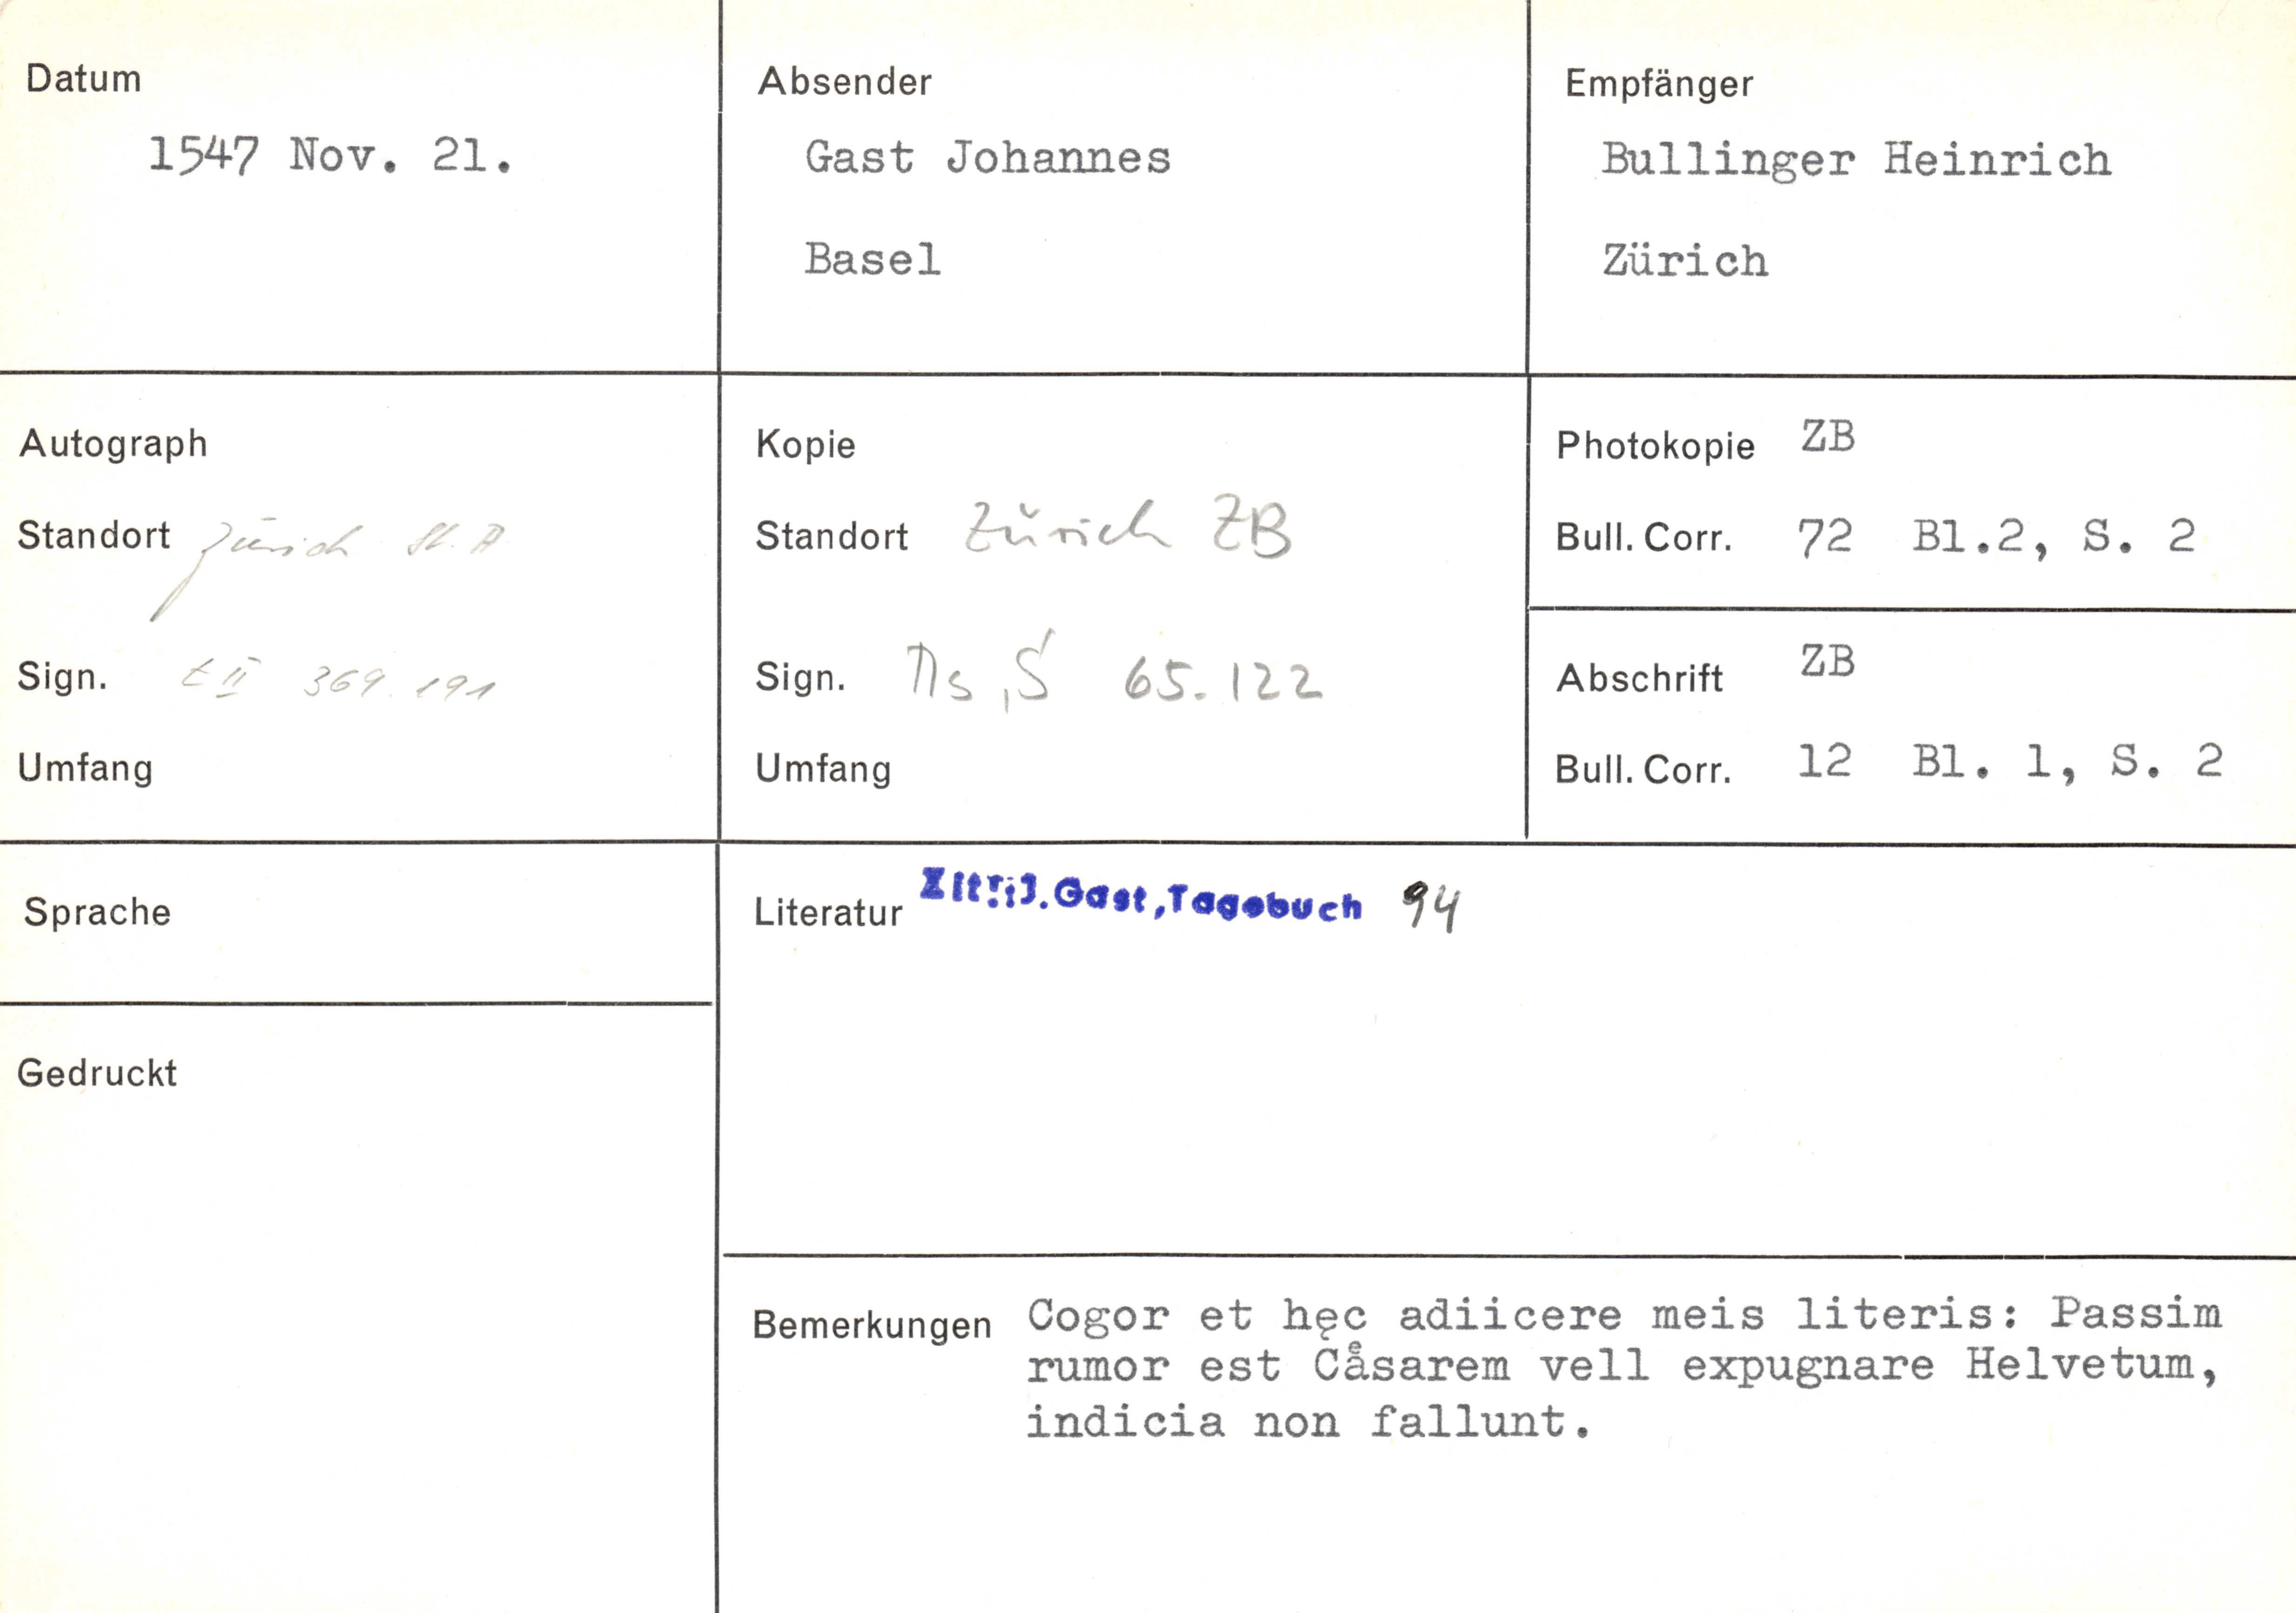 Datum
1547 Nov. 21.
Absender
Gast Johannes
Basel
Empfänger
Bullinger Heinrich
Zürich
Autograph
Standort Zürich St. A
Sign. E II 369. 191
Umfang
Kopie
Standort Zürich ZB
Sign. Ms, S 65.122
Umfang
Photokopie ZB
Bull. Corr. 72 Bl.2, S. 2
Abschrift ZB
Bull. Corr. 12 Bl. 1, S. 2
Sprache
Gedruckt
Literatur Zit.: J. Gast, Tagebuch 94
Bemerkungen Cogor et hęc adiicere meis literis: Passim
rumor est Cåsarem vell expugnare Helvetum,
indicia non fallunt.